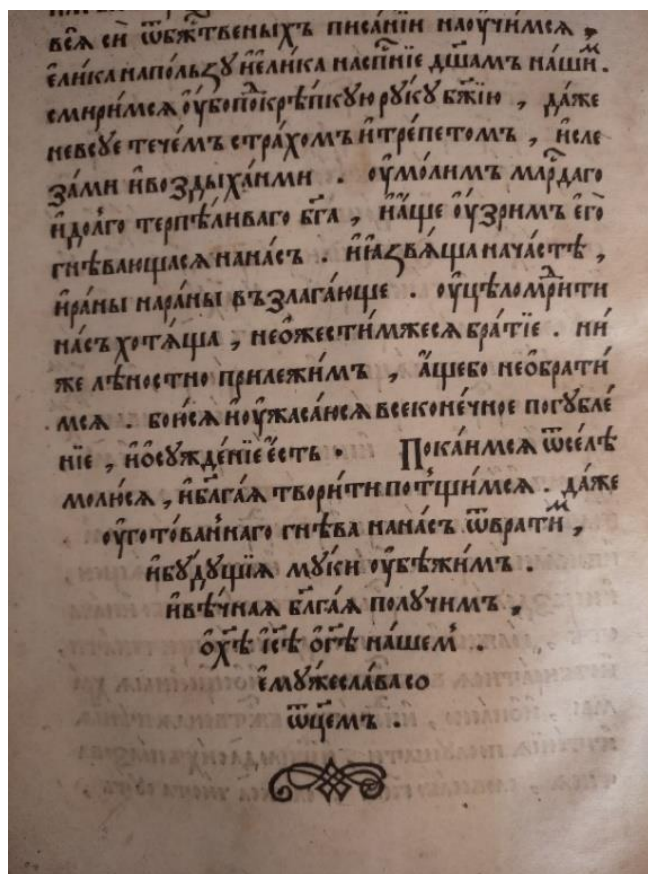 всѧ сїѧ ѿбж҇твеныхъ писа́нїи наоучи́мсѧ ,
є҆ли́ка напо́льꙁꙋ и҆є҆ли́ка наспⷭ҇нїе дш҃амъ на́шиⷨ .
смири́мсѧ оу҆бо поⷣкрѣ́пкꙋю рꙋ́кꙋ бж҃їю , да́же
невсꙋе тече́мъ стра́хомъ и҆тре́петомъ , и҆сле
за́ми и҆воздыха́нми . оу҆мо́лимъ млⷭ҇рдаго
и҆до́лго терпѣли́ваго бг҃а , и҆а҆́ще оу҆́зримъ є҆го̀
гнѣ́вающасѧ нана́съ . и҆ꙗ҆́ꙁвѧща нача́стѣ ,
и҆ра́ны нара́ны възлага́юще . оу҆цѣломⷣрити
на́съ хотѧ́ща , нео҆жести́мжесѧ бра́тїе . ни́
же лѣ́ностно прилежи́мъ , а҆́щебо нео҆брати́
мсѧ . бою́сѧ и҆оу҆жаса́юсѧ всеконе́чное погꙋбле́
нїе , и҆ѻ҆сꙋжде́нїе є҆́сть . Пока́имсѧ ѿсе́лѣ
молю́сѧ , и҆бл҃га́ѧ твори́ти потщи́мсѧ . да́же
оу҆гото́ваннаго гнѣ́ва нана́съ ѿврати́ⷨ ,
и҆бꙋ́дꙋщїѧ мꙋ́ки оу҆бѣжи́мъ .
и҆вѣ́чнаѧ бл҃га́ѧ полꙋчи́мъ ,
ѻ҆хⷭ҇ѣ і҆с҃ѣ ѻ҆гⷭ҇ѣ на́шемъ .
є҆мꙋ́же сла́ва со
ѿц҃емъ .